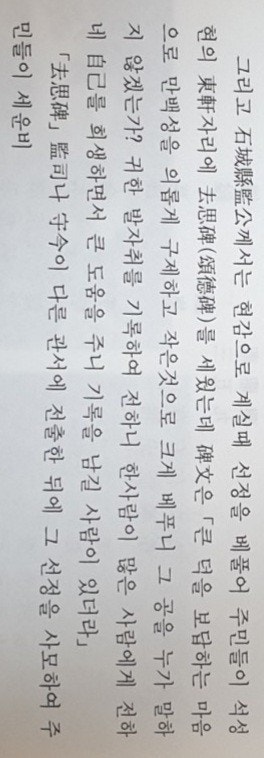 그리고 石城縣監公께서는 현감으로 계실때 선정을 베풀어 주민들이 석성
현의 東軒자리에 去思碑(頌德碑)를 세웠는데 碑文은 「큰 덕을 보답하는 마음
으로 만백성을 의롭게 구제하고 작은것으로 크게 베푸니 그 공을 누가 말하
지 않겠는가? 귀한 발자취를 기록하여 전하니 한사람이 많은 사람에게 전하
네 自己를 희생하면서 큰 도움을 주니 기록을 남긴 사람이 있더라」
「去思碑」 監司나 守令이 다른 관서에 전출한 뒤에 그 선정을 사모하여 주
민들이 세운비